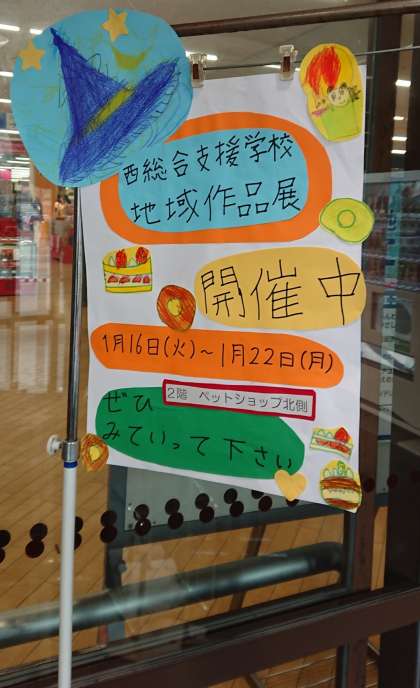 西総合支援学校
地域作品展
開催中
1月16日(火)〜1月22日(月)
2階 ペットショップ北側
ぜひ
みていって下さい